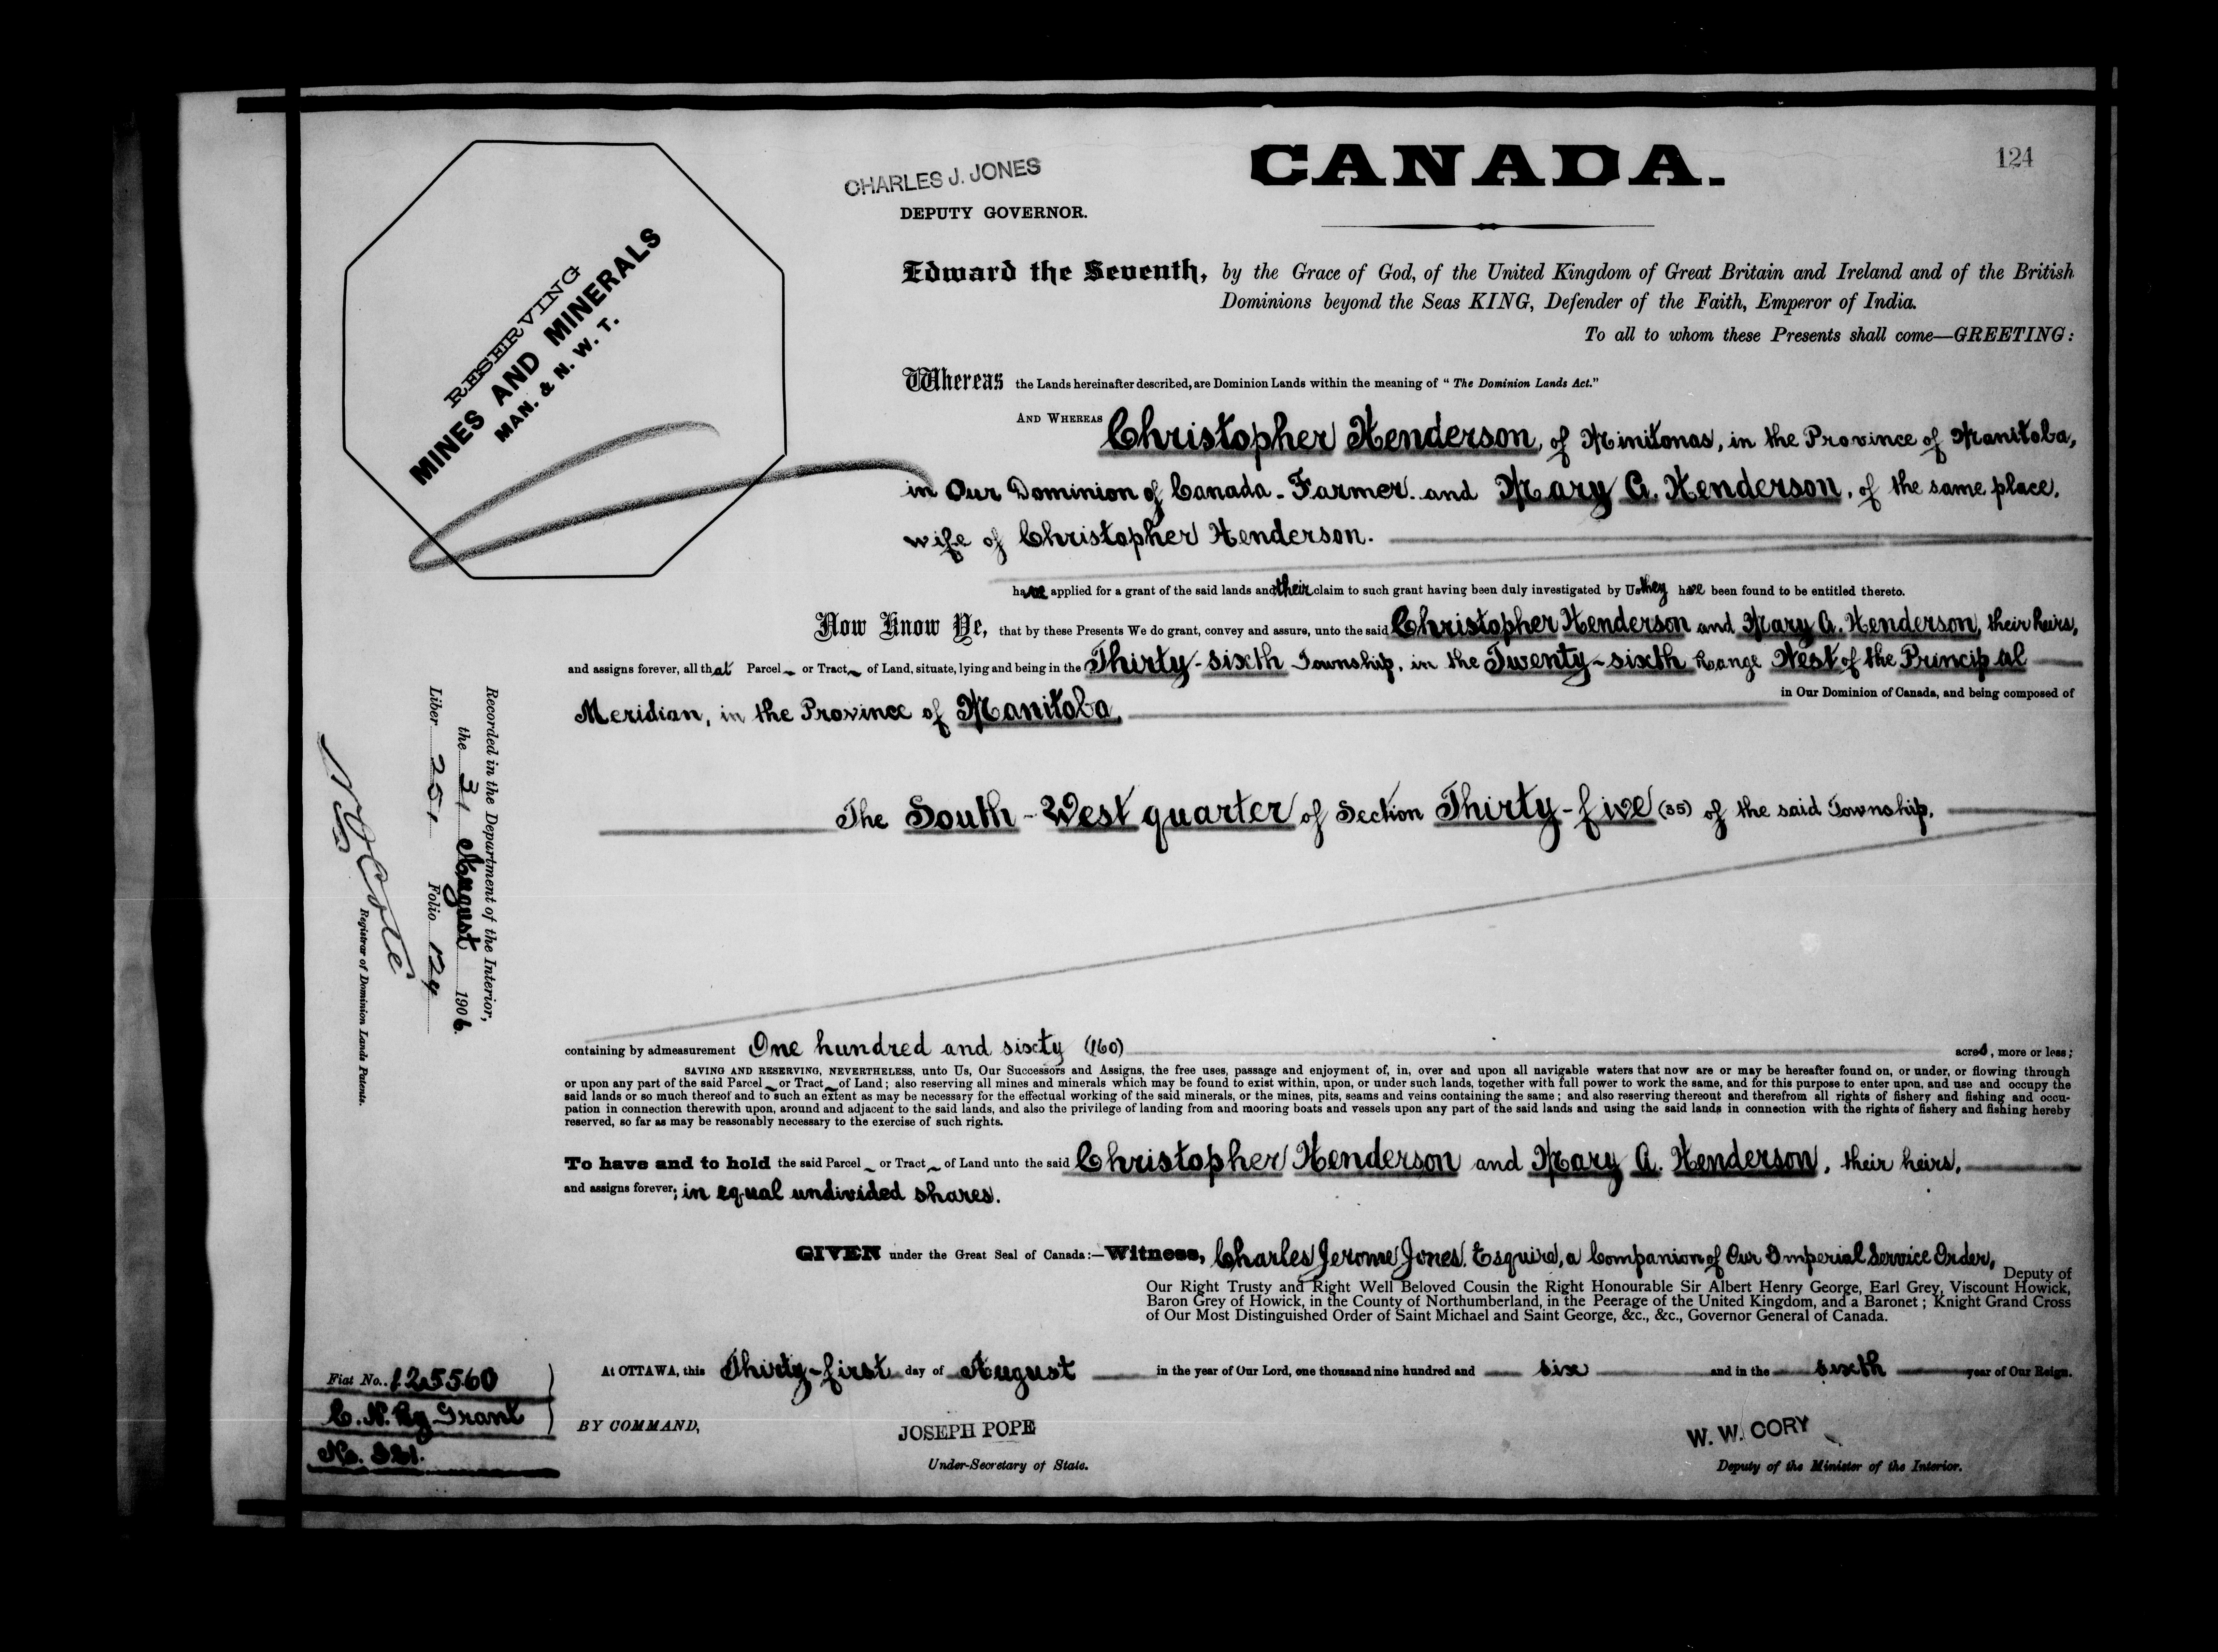 CANADA.
124
CHARLES J. JONES
DEPUTY GOVERNOR.
RESERVING
MINES AND MINERALS
MAN. & N. W. T.
Edward the Seventh, by the Grace of God, of the United Kingdom of Great Britain and Ireland and of the British
Dominions beyond the Seas KING, Defender of the Faith, Emperor of India.
To all to whom these Presents shall come—GREETING:
Whereas the Lands hereinafter described, are Dominion Lands within the meaning of "The Dominion Lands Act."
AND WHEREAS Christopher Henderson, of Minitonas, in the Province of Manitoba,
in Our Dominion of Canada - Farmer. and Mary A. Henderson, of the same place,
wife of Christopher Henderson.
have applied for a grant of the said lands and their claim to such grant having been duly investigated by Us they have been found to be entitled thereto.
Now Know Ye, that by these Presents We do grant, convey and assure, unto the said Christopher Henderson and Mary A. Henderson, their heirs,
and assigns forever, all that Parcel or Tract of Land, situate, lying and being in the Thirty-sixth Township, in the Twenty-sixth Range West of the Principal
in Our Dominion of Canada, and being composed of
Meridian, in the Province of Manitoba,
The South-West quarter of Section Thirty-five (35) of the said Township,
containing by admeasurement One hundred and sixty (160) acres, more or less;
SAVING AND RESERVING, NEVERTHELESS, unto Us, Our Successors and Assigns, the free uses, passage and enjoyment of, in, over and upon all navigable waters that now are or may be hereafter found on, or under, or flowing through
or upon any part of the said Parcel or Tract of Land; also reserving all mines and minerals which may be found to exist within, upon, or under such lands, together with full power to work the same, and for this purpose to enter upon, and use and occupy the
said lands or so much thereof and to such an extent as may be necessary for the effectual working of the said minerals, or the mines, pits, seams and veins containing the same; and also reserving thereout and therefrom all rights of fishery and fishing and occu-
pation in connection therewith upon, around and adjacent to the said lands, and also the privilege of landing from and mooring boats and vessels upon any part of the said lands and using the said lands in connection with the rights of fishery and fishing hereby
reserved, so far as may be reasonably necessary to the exercise of such rights.
To have and to hold the said Parcel or Tract of Land unto the said Christopher Henderson and Mary A. Henderson, their heirs,
and assigns forever; in equal undivided shares.
GIVEN under the Great Seal of Canada:—Witness, Charles Jerome Jones, Esquire, a Companion of Our Imperial Service Order,
Deputy of
Our Right Trusty and Right Well Beloved Cousin the Right Honourable Sir Albert Henry George, Earl Grey, Viscount Howick,
Baron Grey of Howick, in the County of Northumberland, in the Peerage of the United Kingdom, and a Baronet; Knight Grand Cross
of Our Most Distinguished Order of Saint Michael and Saint George, &c., &c., Governor General of Canada.
At OTTAWA, this Thirty-first day of August in the year of Our Lord, one thousand nine hundred and six and in the sixth year of Our Reign.
BY COMMAND,
JOSEPH POPE
Under-Secretary of State.
W. W. CORY
Deputy of the Minister of the Interior.
Recorded in the Department of the Interior,
the 31 August 1906.
Liber 251 Folio 124
Côté
Registrar of Dominion Lands Patents.
Fiat No. 125560
C. N. Ry Grant
No.